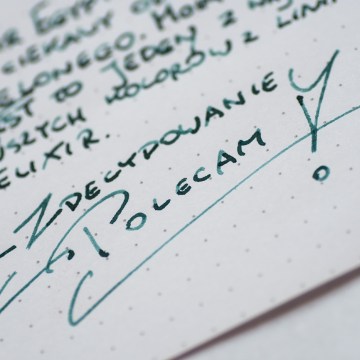 EGYP
CIEKAWY
ELONEGO.
ST TO JEDEN Z
USZYCH KOLORÓW Z LINI
ELIXIR.
ZDECYDOWANIE
POLECAM!